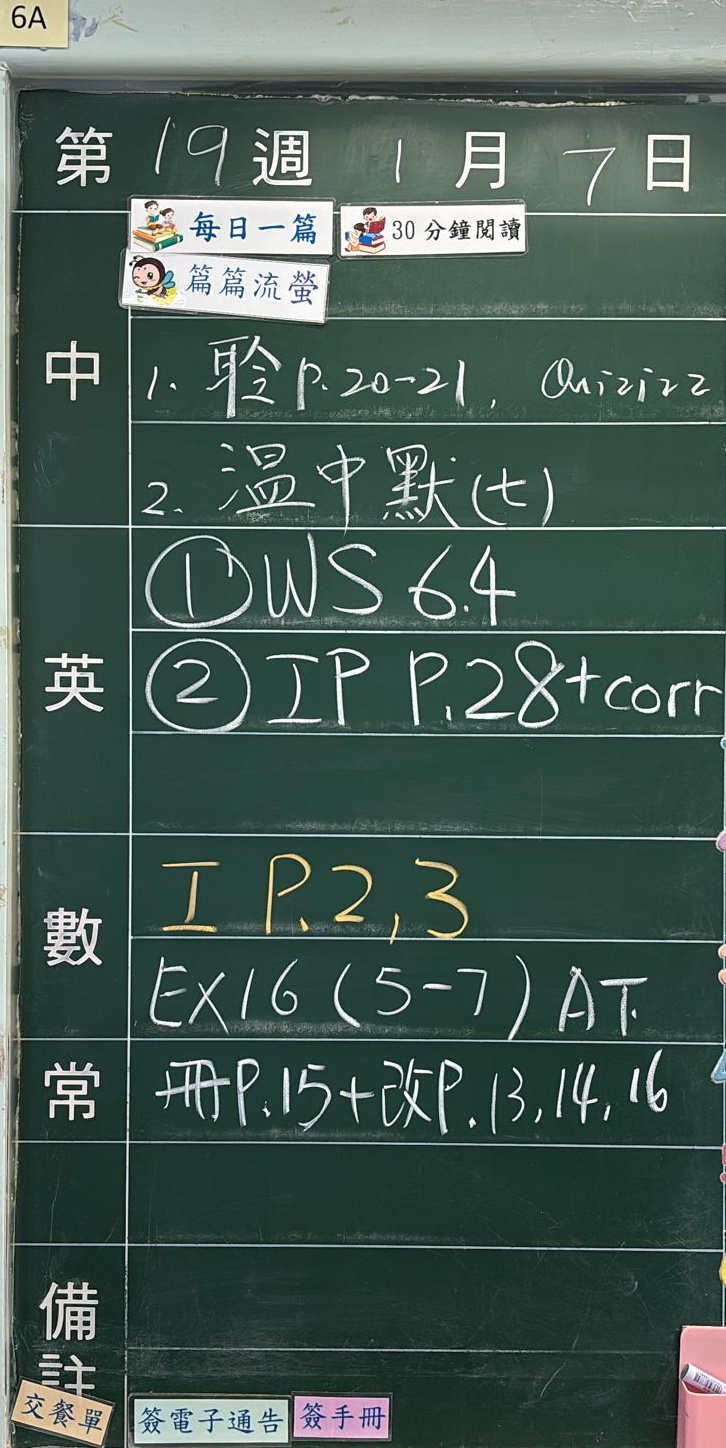 6A
第 19 週 1 月 7 日
每日一篇 30分鐘閱讀
篇篇流螢
中
1. 聆 P.20-21, Quizizz
2. 溫中默(七)
英
① WS 6.4
② IP P.28+corr
數
I P.2,3
EX16 (5-7) AT.
常
冊P.15+改P.13,14,16
備註
交餐單 簽電子通告 簽手冊